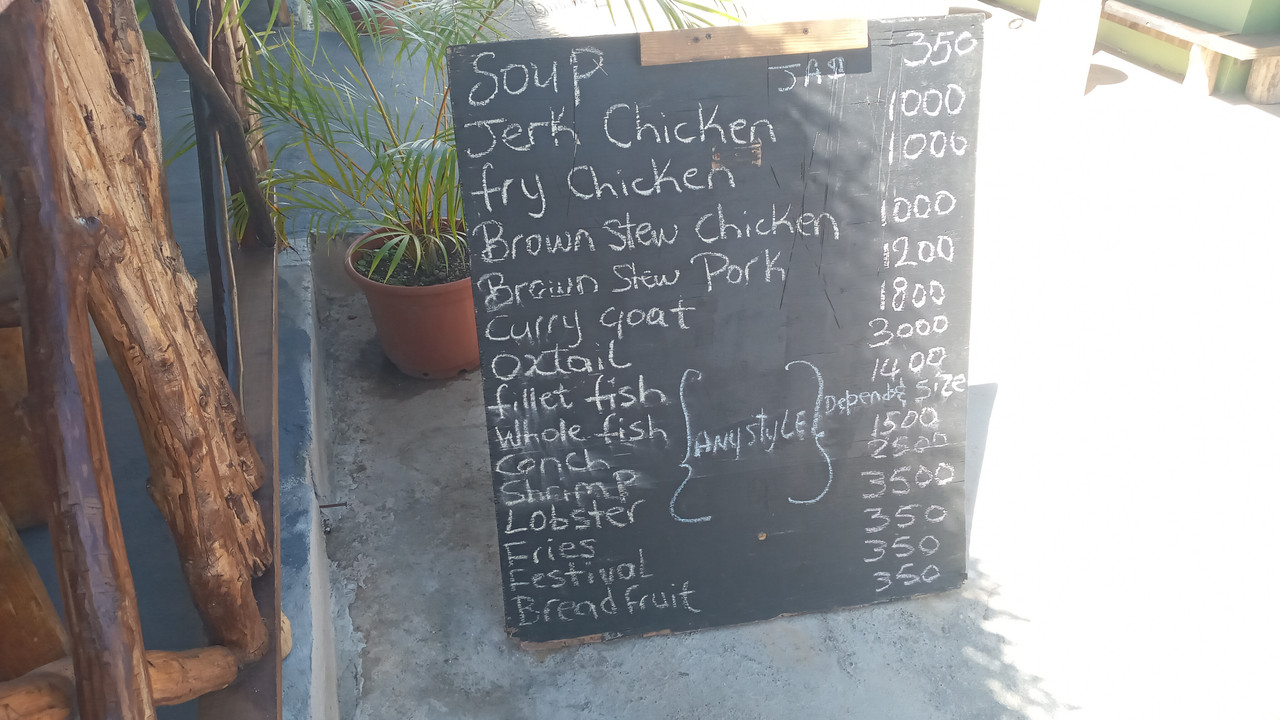 Soup JA$ 350
Jerk Chicken 1000
fry Chicken 1000
Brown Stew Chicken 1000
Brown Stew Pork 1200
Curry goat 1800
Oxtail 3000
fillet fish 1400
Whole fish Depends Size
Conch 1500
ANY STYLE
Shrimp 2500
Lobster 3500
Fries 350
Festival 350
Breadfruit 350